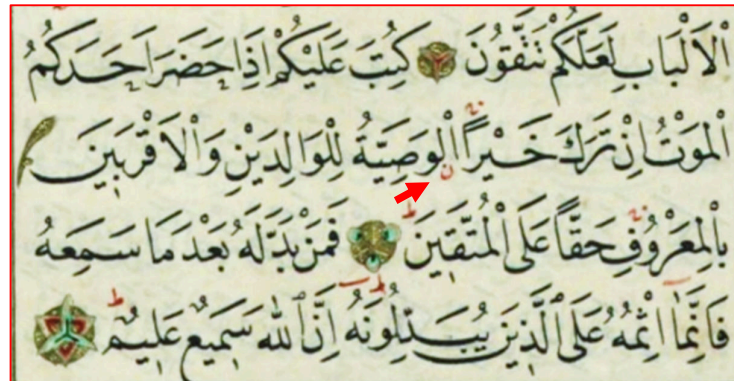 الْاَلْبَابِ لَعَلَّكُمْ تَتَّقُونَ كُتِبَ عَلَيْكُمْ اِذَا حَضَرَ اَحَدَكُمُ
الْمَوْتُ اِنْ تَرَكَ خَيْرًا الْوَصِيَّةُ لِلْوَالِدَيْنِ وَالْاَقْرَبِينَ
بِالْمَعْرُوفِ حَقًّا عَلَى الْمُتَّقِينَ فَمَنْ بَدَّلَهُ بَعْدَ مَا سَمِعَهُ
فَاِنَّمَا اِثْمُهُ عَلَى الَّذِينَ يُبَدِّلُونَهُ اِنَّ اللّٰهَ سَمِيعٌ عَلِيمٌ